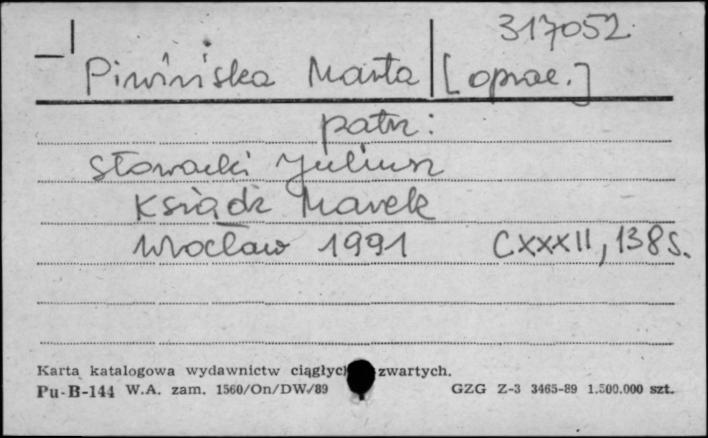 317052
Piwińska Marta [oprac.]
patrz:
Słowacki Juliusz
Ksiądz Marek
Wrocław 1991 CXXXII, 138 s.
Karta katalogowa wydawnictw ciągłych zwartych.
Pu-B-144 W.A. zam. 1560/On/DW/89 GZG Z-3 3465-89 1.500.000 szt.